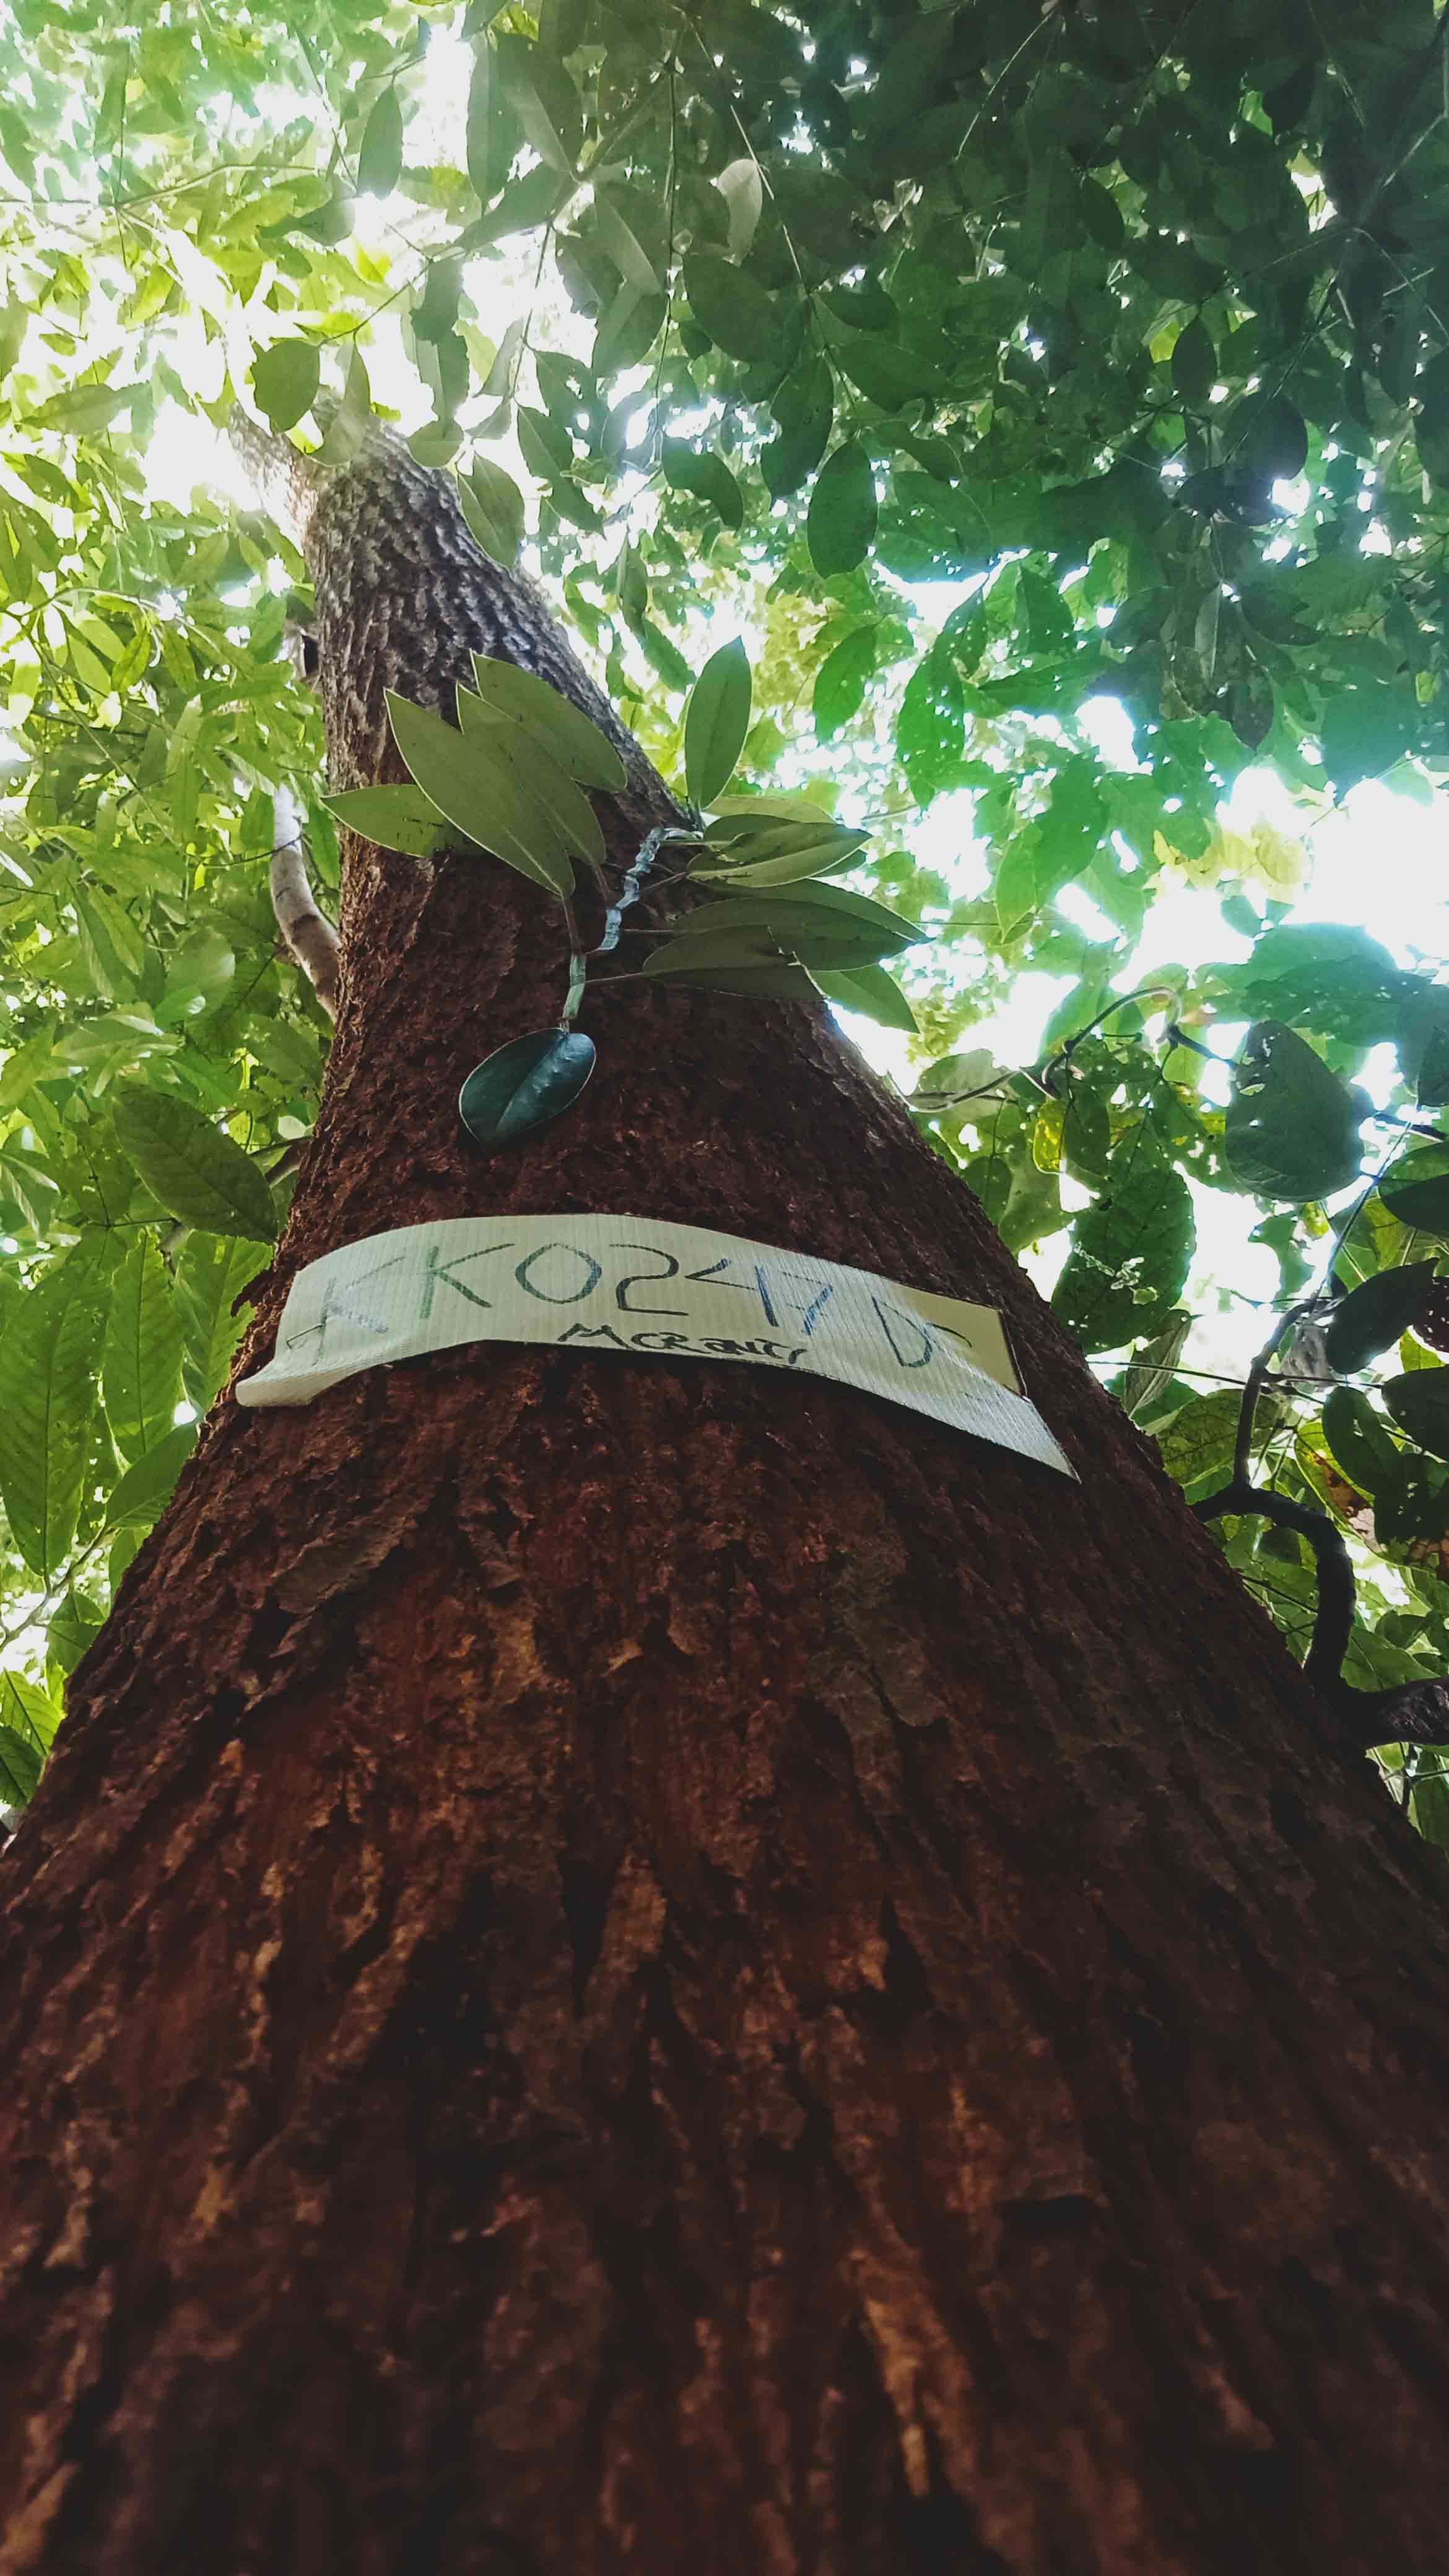 KK0247D
MERANTI